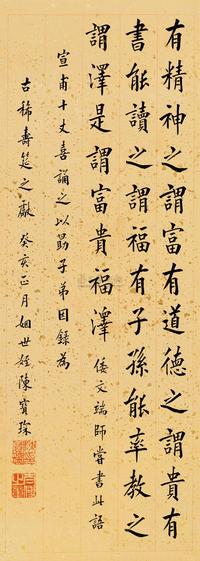 有精神之謂富有道德之謂貴有
書能讀之謂福有子孫能率教之
謂澤是謂富貴福澤 倭文端師嘗書此語
宣甫十丈喜誦之以勗子弟因錄為
古稀壽筵之獻 癸亥正月姻世姪陳寶琛